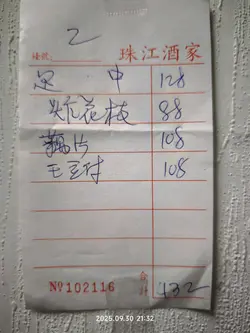 2
珠江酒家
中 128
炸花枝 88
片 108
豆付 108
№102116 合計 432
2025.09.30 21:32